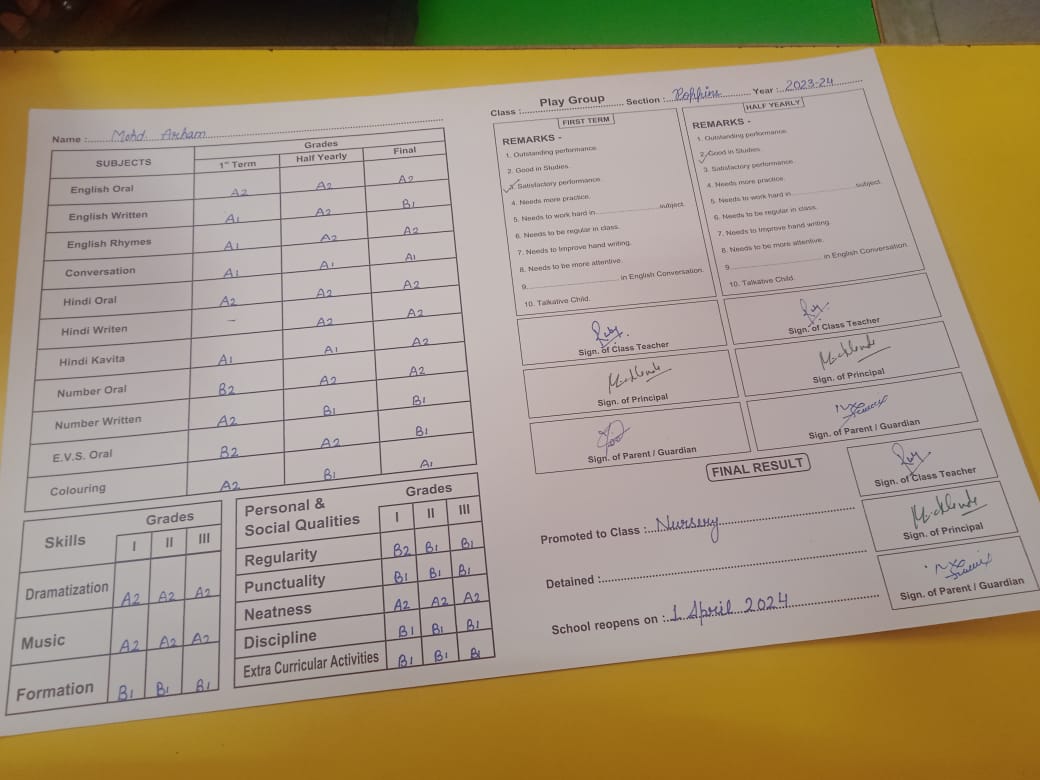 Name : Mohd Arham
SUBJECTS Grades
1st Term Half Yearly Final
English Oral A2 A2 A2
English Written A1 A2 B1
English Rhymes A1 A2 A2
Conversation A1 A1 A1
Hindi Oral A2 A2 A2
Hindi Writen – A2 A2
Hindi Kavita A1 A1 A2
Number Oral B2 A2 A2
Number Written A2 B1 B1
E.V.S. Oral B2 A2 B1
Colouring A2 B1 A1
Skills Grades
I II III
Dramatization A2 A2 A2
Music A2 A2 A2
Formation B1 B1 B1
Personal & Social Qualities Grades
I II III
Regularity B2 B1 B1
Punctuality B1 B1 B1
Neatness A2 A2 A2
Discipline B1 B1 B1
Extra Curricular Activities B1 B1 B1
Class : Play Group Section : Year : 2023-24
FIRST TERM
REMARKS -
1. Outstanding performance.
2. Good in Studies.
3. Satisfactory performance.
4. Needs more practice.
5. Needs to work hard in subject.
6. Needs to be regular in class.
7. Needs to Improve hand writing.
8. Needs to be more attentive.
9. in English Conversation.
10. Talkative Child.
Sign. of Class Teacher
Sign. of Principal
Sign. of Parent / Guardian
HALF YEARLY
REMARKS -
1. Outstanding performance.
2. Good in Studies.
3. Satisfactory performance.
4. Needs more practice.
5. Needs to work hard in subject.
6. Needs to be regular in class.
7. Needs to Improve hand writing.
8. Needs to be more attentive.
9. in English Conversation.
10. Talkative Child.
Sign. of Class Teacher
Sign. of Principal
Sign. of Parent / Guardian
FINAL RESULT
Promoted to Class : Nursery
Detained :
School reopens on : 1 April 2024
Sign. of Class Teacher
Sign. of Principal
Sign. of Parent / Guardian